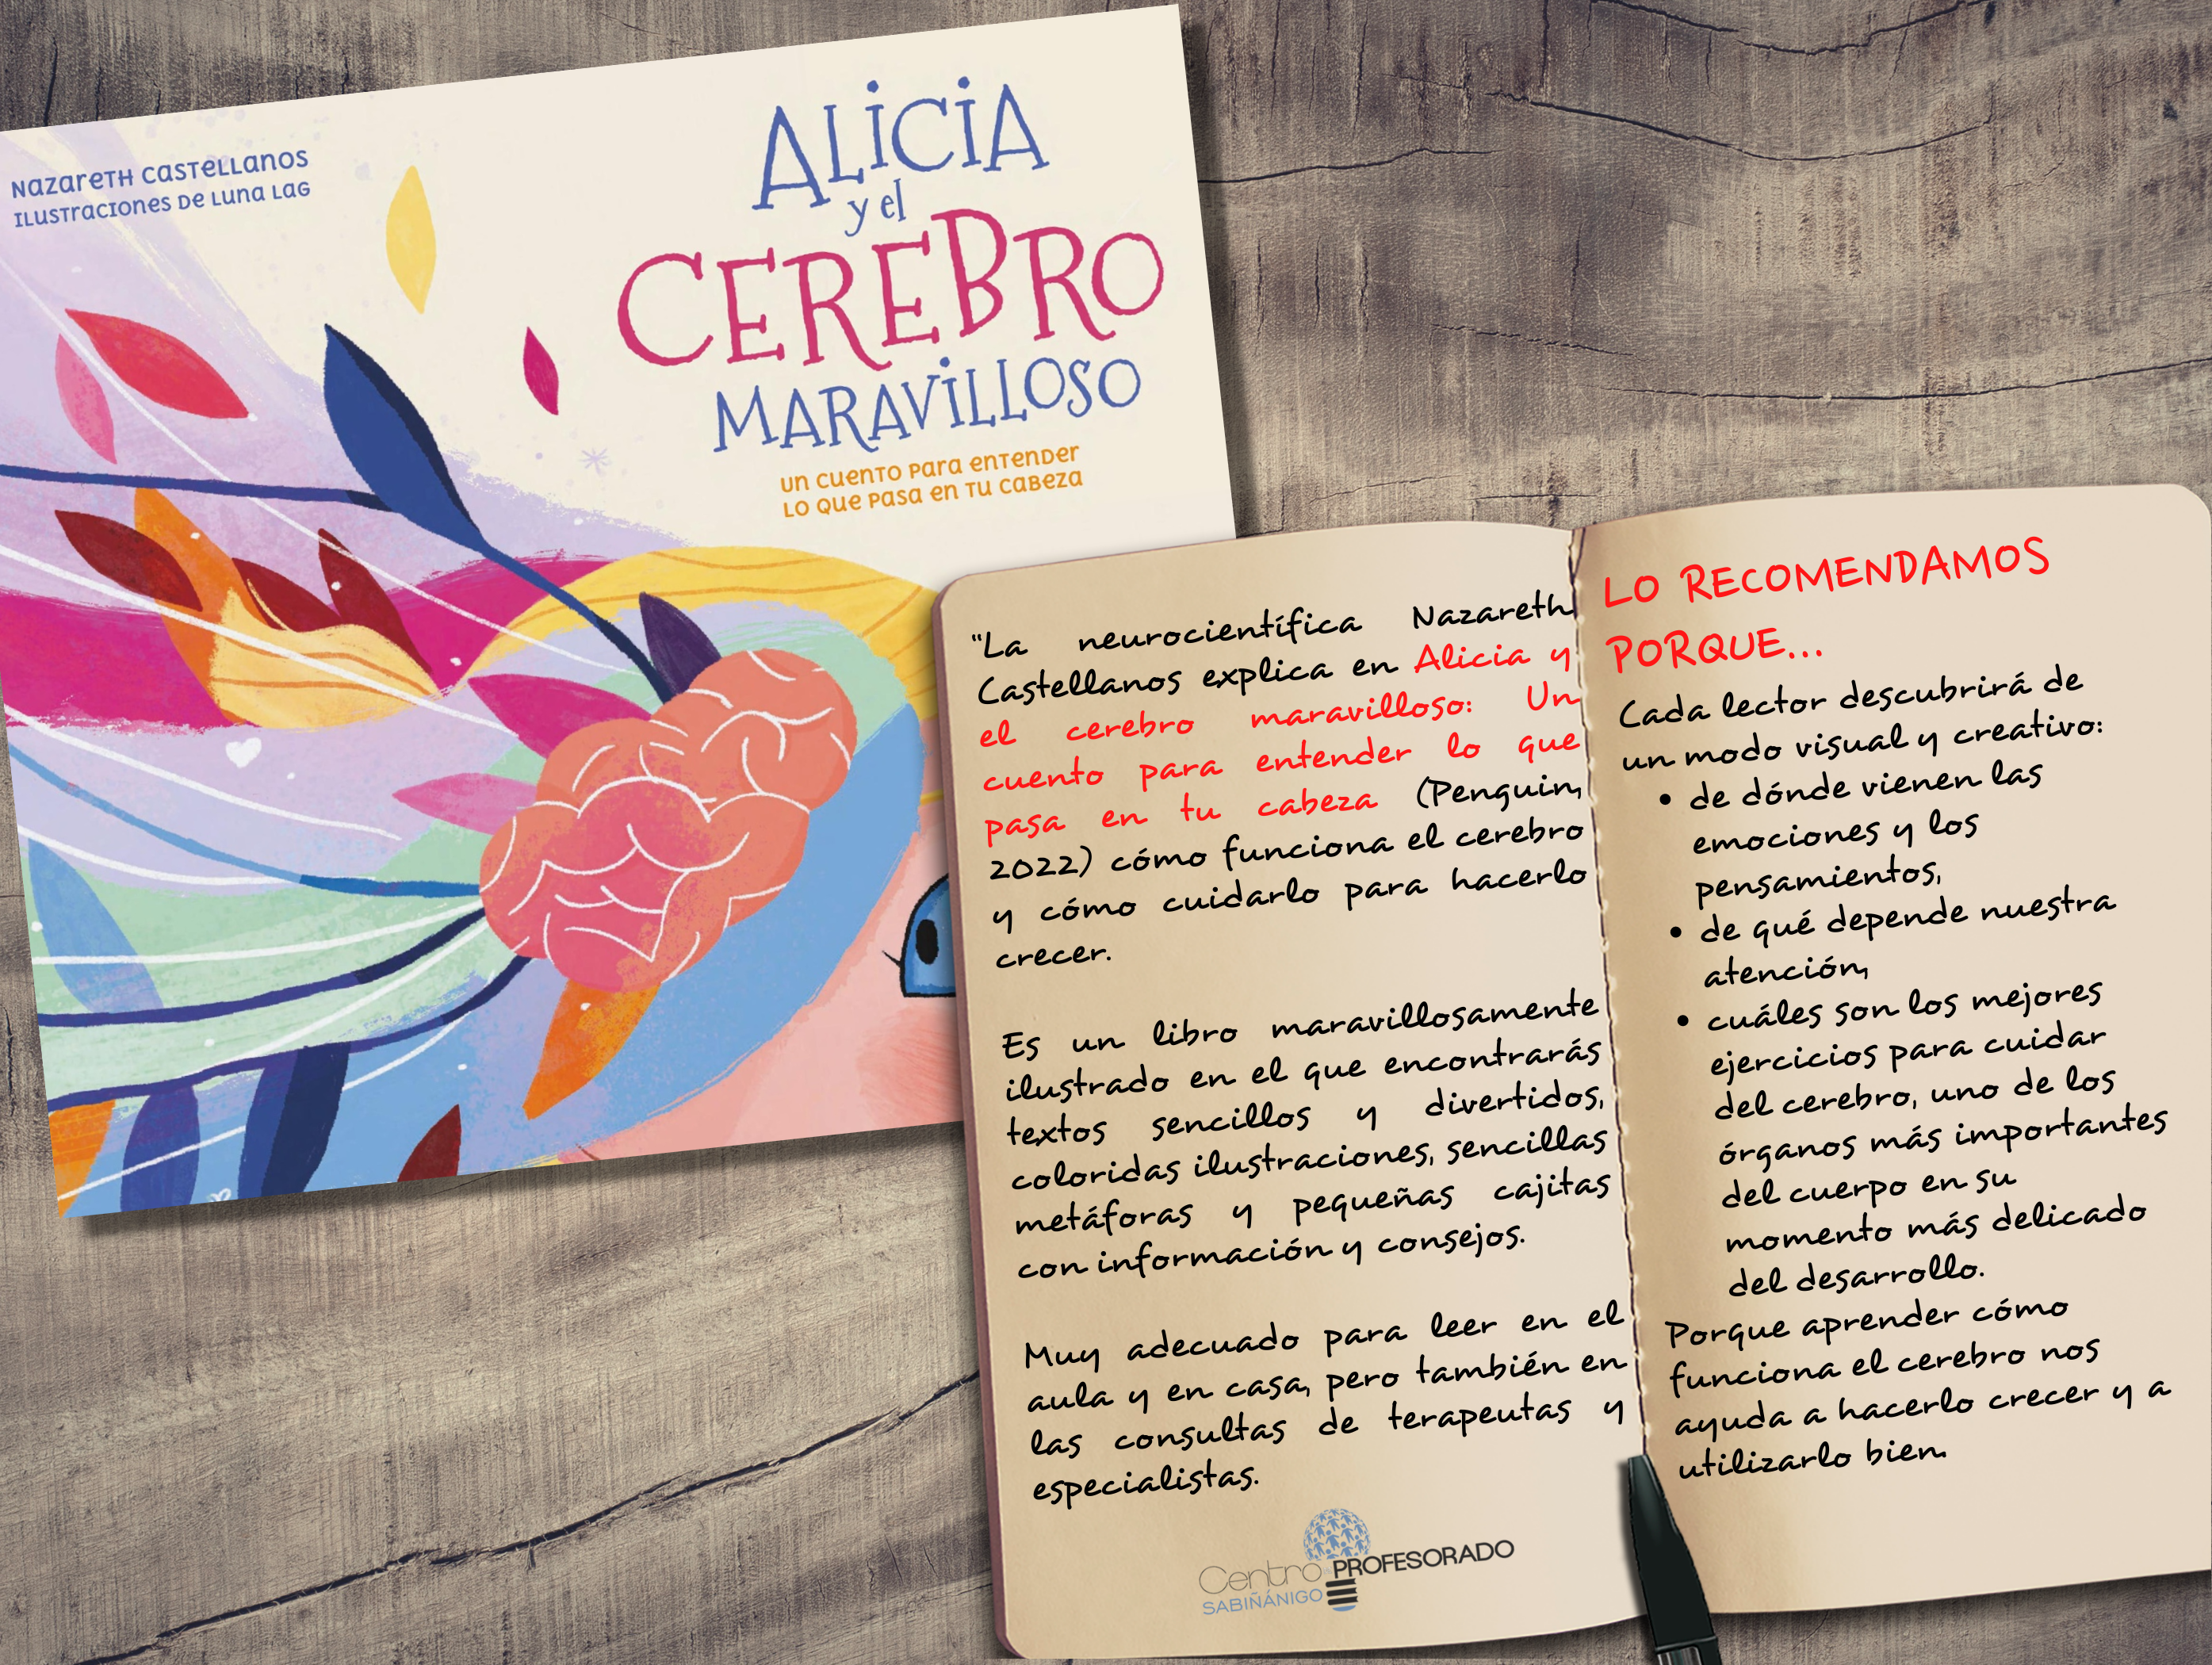 Nazareth Castellanos
Ilustraciones de Luna Lag
Alicia
y el
CEREBRO
MARAVILLOSO
Un cuento para entender
lo que pasa en tu cabeza
"La neurocientífica Nazareth
Castellanos explica en Alicia y
el cerebro maravilloso: Un
cuento para entender lo que
pasa en tu cabeza (Penguin,
2022) cómo funciona el cerebro
y cómo cuidarlo para hacerlo
crecer.
Es un libro maravillosamente
ilustrado en el que encontrarás
textos sencillos y divertidos,
coloridas ilustraciones, sencillas
metáforas y pequeñas cajitas
con información y consejos.
Muy adecuado para leer en el
aula y en casa, pero también en
las consultas de terapeutas y
especialistas.
Centro PROFESORADO
SABIÑÁNIGO
LO RECOMENDAMOS
PORQUE...
Cada lector descubrirá de
un modo visual y creativo:
• de dónde vienen las
emociones y los
pensamientos,
• de qué depende nuestra
atención,
• cuáles son los mejores
ejercicios para cuidar
del cerebro, uno de los
órganos más importantes
del cuerpo en su
momento más delicado
del desarrollo.
Porque aprender cómo
funciona el cerebro nos
ayuda a hacerlo crecer y a
utilizarlo bien.